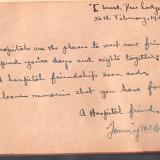 Ward, Peir Lodge
26th February, 19
Hospitals are the places to meet new friends
spend your days and nights together
A hospital friendship soon ends
leaves memories that you have for
A Hospital friend
Jimmy Mc